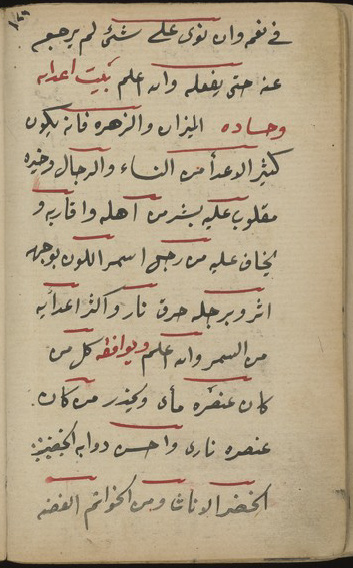 في نفعه وان نوى على شئ لم يرجع
عنه حتى يفعله والله اعلم بيت اعدايه
وحساده الميزان والزهره فانه يكون
كثير الاعدأ من النساء والرجال وخيره
مقلوب عليه بشر من اهله واقاربه و
يخاف عليه من رجل اسمر اللون بوجهه
اثر وبرجله حرق نار واكثر اعدايه
من السمر والله اعلم ويوافقه كل من
كان عنصره مأى ويحذر من كان
عنصره نارى واحسن دوابه
الخضر الاناث ومن الخواتم الفضه